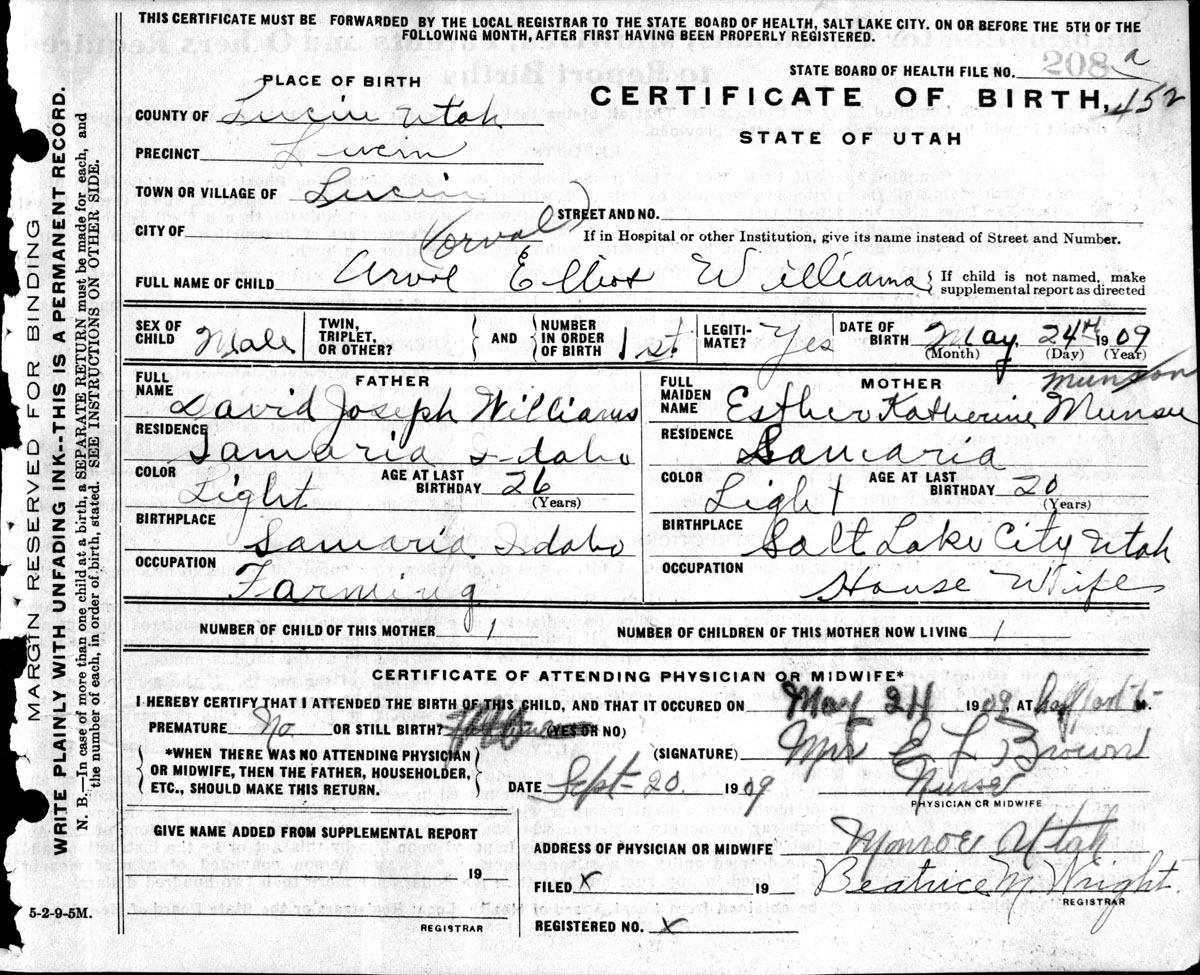 THIS CERTIFICATE MUST BE FORWARDED BY THE LOCAL REGISTRAR TO THE STATE BOARD OF HEALTH, SALT LAKE CITY. ON OR BEFORE THE 5TH OF THE
FOLLOWING MONTH, AFTER FIRST HAVING BEEN PROPERLY REGISTERED.
MARGIN RESERVED FOR BINDING
WRITE PLAINLY WITH UNFADING INK--THIS IS A PERMANENT RECORD.
N. B.—In case of more than one child at a birth, a SEPARATE RETURN must be made for each, and
the number of each, in order of birth, stated. SEE INSTRUCTIONS ON OTHER SIDE.
PLACE OF BIRTH
STATE BOARD OF HEALTH FILE NO. 208 a
CERTIFICATE OF BIRTH, 452
STATE OF UTAH
COUNTY OF Lucin Utah
PRECINCT Lucin
TOWN OR VILLAGE OF Lucin
STREET AND NO.
CITY OF
If in Hospital or other Institution, give its name instead of Street and Number.
(orval)
FULL NAME OF CHILD Arvol Elliot Williams { If child is not named, make
supplemental report as directed
SEX OF CHILD Male TWIN, TRIPLET, OR OTHER? AND NUMBER IN ORDER OF BIRTH 1st LEGITI-MATE? Yes DATE OF BIRTH May 24th 1909
(Month) (Day) (Year)
FATHER
FULL NAME David Joseph Williams
RESIDENCE Samaria Idaho
COLOR Light AGE AT LAST BIRTHDAY 26 (Years)
BIRTHPLACE Samaria Idaho
OCCUPATION Farming
MOTHER
Munson
FULL MAIDEN NAME Esther Katherine
RESIDENCE Samaria
COLOR Light AGE AT LAST BIRTHDAY 20 (Years)
BIRTHPLACE Salt Lake City Utah
OCCUPATION House Wife
NUMBER OF CHILD OF THIS MOTHER 1 NUMBER OF CHILDREN OF THIS MOTHER NOW LIVING 1
CERTIFICATE OF ATTENDING PHYSICIAN OR MIDWIFE*
I HEREBY CERTIFY THAT I ATTENDED THE BIRTH OF THIS CHILD, AND THAT IT OCCURED ON May 24 1909 AT half past 6 M.
PREMATURE No OR STILL BIRTH? (YES OR NO)
*WHEN THERE WAS NO ATTENDING PHYSICIAN
OR MIDWIFE, THEN THE FATHER, HOUSEHOLDER,
ETC., SHOULD MAKE THIS RETURN.
(SIGNATURE) Mrs E L Brown
DATE Sept 20. 1909 Nurse
PHYSICIAN OR MIDWIFE
GIVE NAME ADDED FROM SUPPLEMENTAL REPORT
19
REGISTRAR
ADDRESS OF PHYSICIAN OR MIDWIFE Monroe Utah
FILED x 19 Beatrice N. Wright.
REGISTRAR
REGISTERED NO. x
5-2-9-5M.